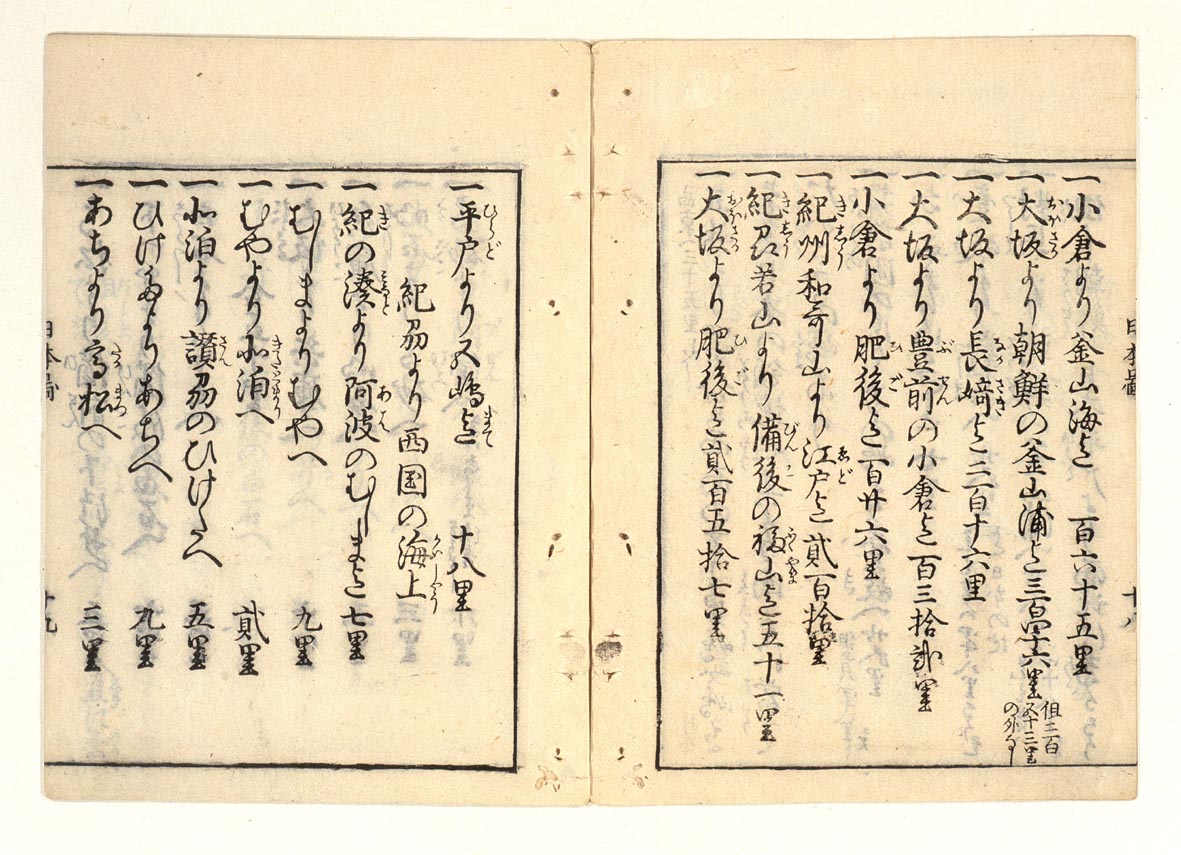 一小倉より釜山海迄 百六十五里
一大坂より朝鮮の釜山浦迄三百四十六里 但三百五十三里の外なし
一大坂より長崎迄二百十六里
一大坂より豊前の小倉迄百三拾弐里
一小倉より肥後迄百廿六里
一紀州和哥山より江戸迄貳百拾里
一紀州若山より備後の福山迄五十一里
一大坂より肥後迄貳百五拾七里
日本圖
十八
一平戸より五嶋迄 十八里
紀州より西国の海上
一紀の湊より阿波のむしま迄 七里
一むしまよりむやへ 九里
一むやより北泊へ 貳里
一北泊より讃州のひけたへ 五里
一ひけたよりあちへ 九里
一あちより高松へ 三里
日本圖
十九